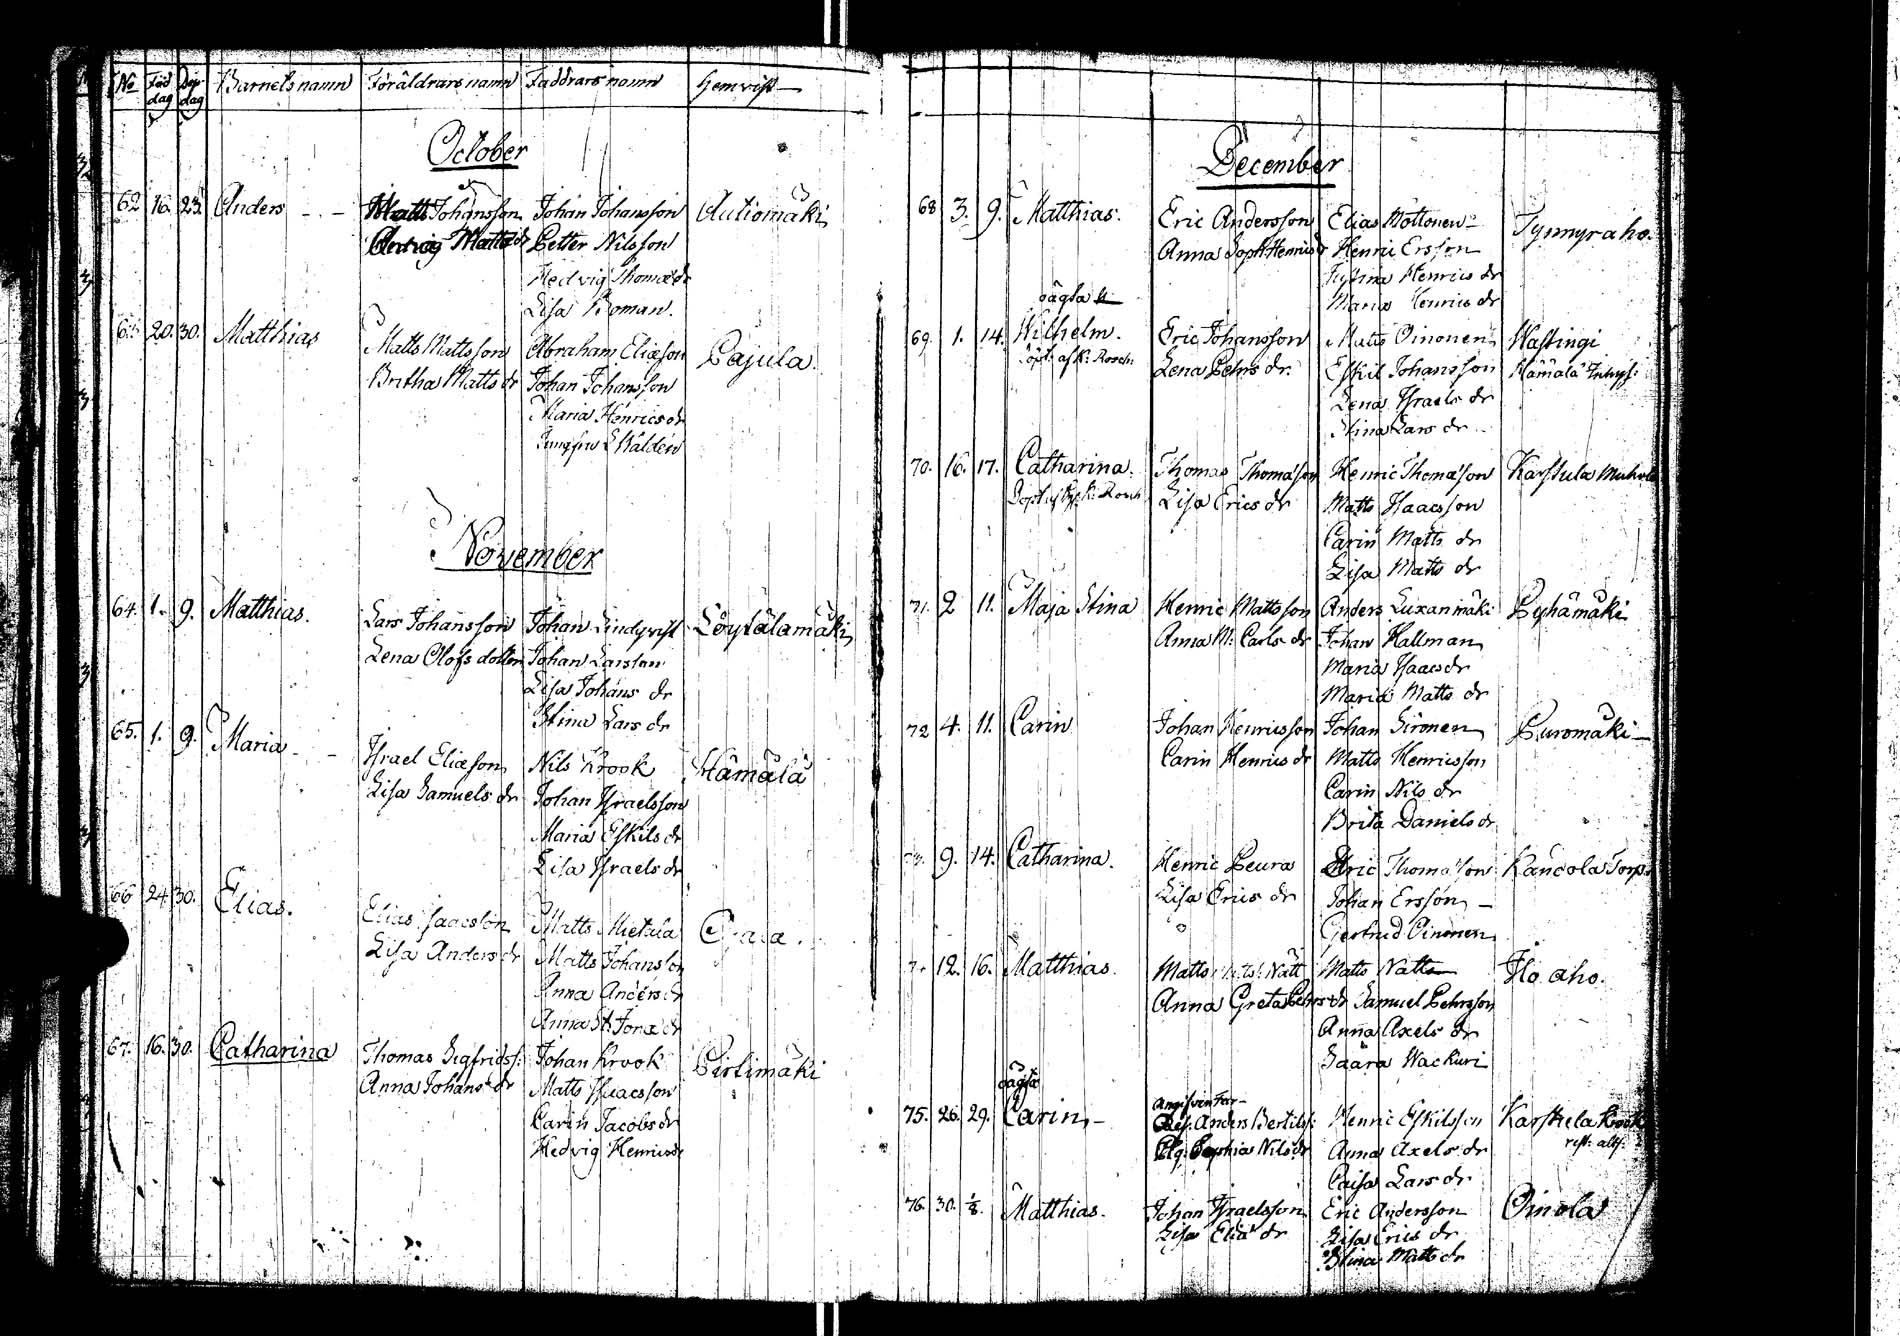 No Föd dag Döp dag Barnets namn Föräldrars namn Faddrars namn Hemvist
October
62 16 23 Anders - - Matts Johansson Johan Johansson Autiomäki
Matts dr Petter Nilsson
Hedvig Thomæ dr
Lisa Roman.
20. 30. Matthias Matts Mattsson Abraham Eliæson Pajula.
Britha Matts dr Johan Johansson
Maria Henrics dr
Jungfru L Walden
November
64. 1. 9. Matthias. Lars Johansson Johan Lindqvist Löytälämäki
Lena Olofs dotter Johan Larsson
Lisa Johans dr
Stina Lars dr
65. 1. 9. Maria - - Israel Eliæson Nils Krook Hämälä
Lisa Samuels dr Johan Israelsson
Maria Eskils dr
Lisa Israels dr
66 24 30. Elias. Elias Isaacsson Matts
Lisa Anders dr Matts Johansson
Anna Anders dr
Anna St. Jonæ dr
67. 16. 30. Catharina Thomas Sigfridss: Johan Krook Pirtimäki
Anna Johans dr Matts Isaacsson
Carin Jacobs dr
Hedvig Henrics dr
December
68 3. 9. Matthias. Eric Andersson Elias Möttönen - Tynnyraho.
Anna Soph Henrics dr Henric Ersson
Henrics dr
Maria Henrics dr
oägta
69. 1. 14. Wilhelm. Eric Johansson Matts Oinonen Wastingi
döpt. af k: Rosch: Lena Pehrs dr. Eskil Johansson Hämälä Inhys:
Lena Israels dr
Stina Lars dr
70. 16. 17. Catharina. Thomas Thomæson Henric Thomæson Karstula
Lisa Erics dr Matts Isaacsson
Carin Matts dr
Lisa Matts dr
71. 2 11. Maja Stina Henric Mattsson Anders Luxanmäki Pyhämäki
Anna M: Carls dr Johan Hallman
Maria Isaacs dr
Maria Matts dr
72 4. 11. Carin Johan Henricsson Johan Sironen Puromäki -
Carin Henrics dr Matts Henricsson
Carin Nils dr
Brita Daniels dr
9. 14. Catharina. Henric Leura Eric Thomæson Torp.
Lisa Erics dr Johan Ersson -
Gertrud Oinonen
12. 16. Matthias. Matts Nätt Matts Natt Ilo aho.
Anna Greta Pehrs dr Samuel Pehrsson
Anna Axels dr
Saara Wackuri
oägta
75. 26. 29. Carin - Anders Bertilss: Henric Eskilsson
Sophia Nils dr Anna Axels dr
Caisa Lars dr
76. 30. 1/8. Matthias. Johan Israelsson Eric Andersson Oinola
Lisa Eliæ dr Lisa Erics dr
Stina Matts dr